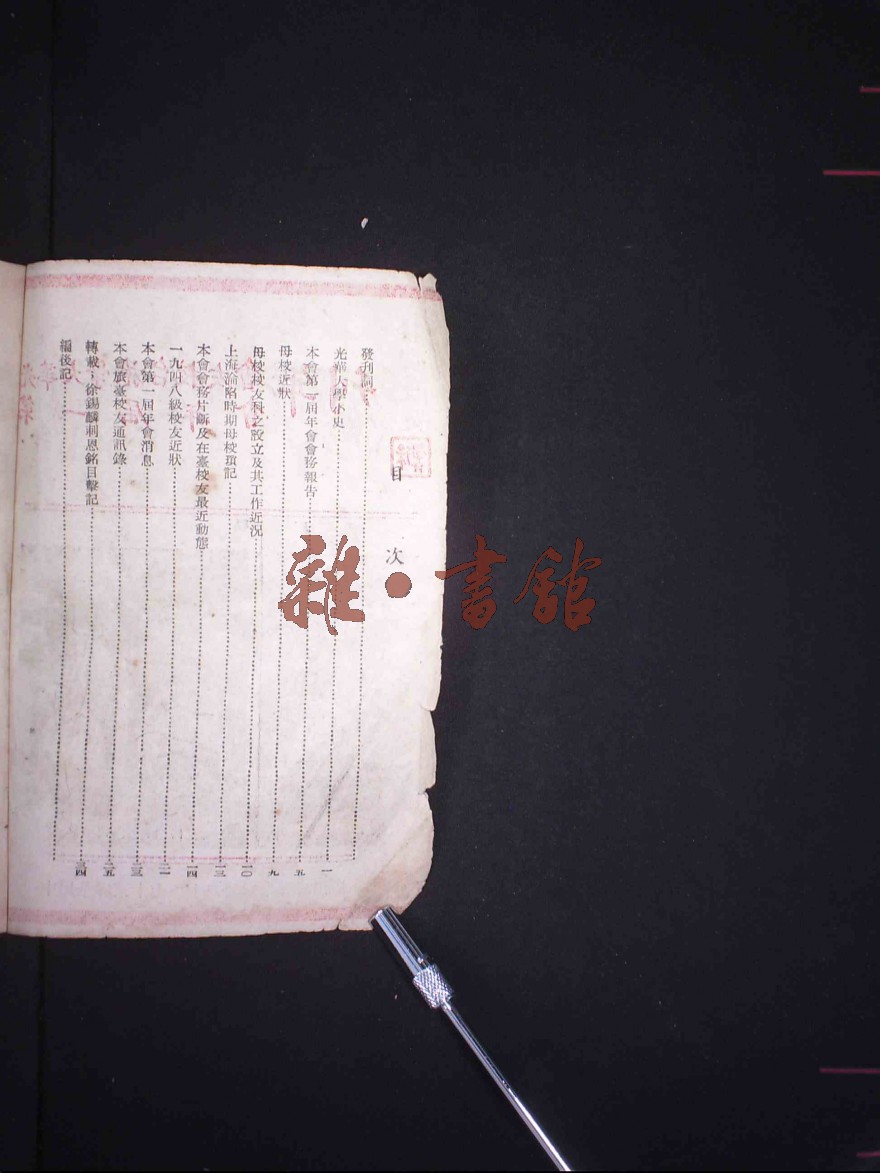 目次
發刊詞
光華大學小史……一
本會第一屆年會會務報告……五
母校近狀……九
母校校友科之設立及其工作近況……一〇
上海淪陷時期母校瑣記……一三
本會會務片斷及在臺校友最近動態……一四
一九四八級校友近狀……二一
本會第一屆年會消息……二三
本會旅臺校友通訊錄……二五
轉載：徐錫麟刺恩銘目擊記……三四
編後記
雜·書館